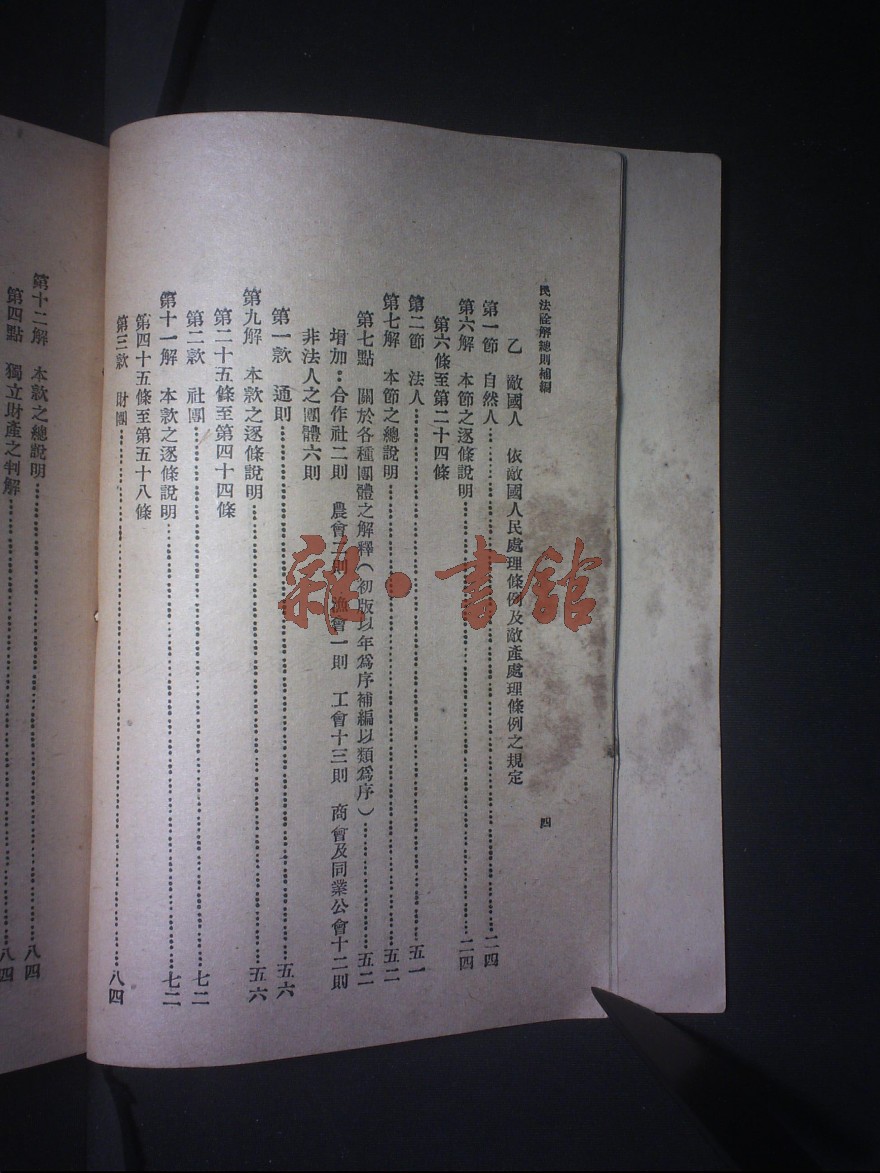 民法詮解總則補編
四
乙 敵國人 依敵國人民處理條例及敵產處理條例之規定
第一節 自然人……二四
第六解 本節之逐條說明……二四
第六條至第二十四條
第二節 法人……五一
第七解 本節之總說明……五二
第七點 關於各種團體之解釋(初版以年爲序補編以類爲序)……五二
增加:合作社二則 農會三則 漁會一則 工會十三則 商會及同業公會十二則
非法人之團體六則
第一款 通則……五六
第九解 本款之逐條說明……五六
第二十五條至第四十四條
第二款 社團……七二
第十一解 本款之逐條說明……七二
第四十五條至第五十八條
第三款 財團……八四
第十二解 本款之總說明……八四
第四點 獨立財產之判解……八四
雜·書館